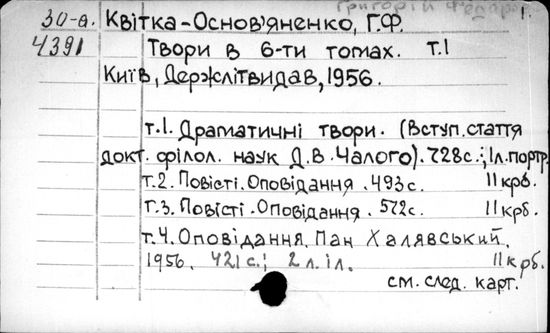 Григорій Федоро
1.
30-а. Квітка-Основ'яненко, Г.Ф.
4391 Твори в 6-ти томах. т.1
Київ, Держлітвидав, 1956.
т.1. Драматичні твори. (Вступ. стаття
докт. філол. наук Д.В. Чалого). 728с.; 1л. портр.
т.2. Повісті. Оповідання. 493с. 11 крб.
т.3. Повісті. Оповідання. 572с. 11 крб.
т.4. Оповідання. Пан Халявський.
1956. 421с.; 2 л. іл. 11 крб.
см. след. карт.